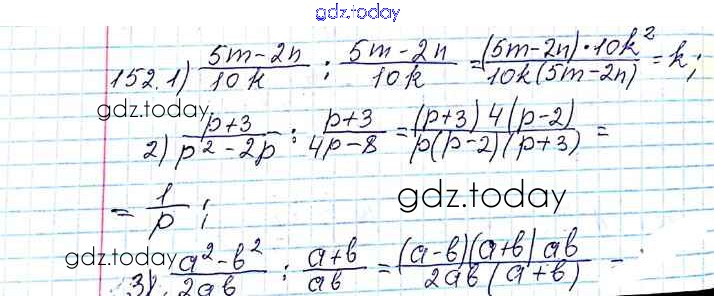 gdz.today
152. 1) (5m-2n)/(10k) : (5m-2n)/(10k) = ((5m-2n)·10k²)/(10k(5m-2n)) = k;
gdz.today
2) (p+3)/(p²-2p) : (p+3)/(4p-8) = ((p+3)4(p-2))/(p(p-2)(p+3)) =
= 1/p;
gdz.today
gdz.today
3) (a²-b²)/(2ab) : (a+b)/(ab) = ((a-b)(a+b)ab)/(2ab(a+b)) =